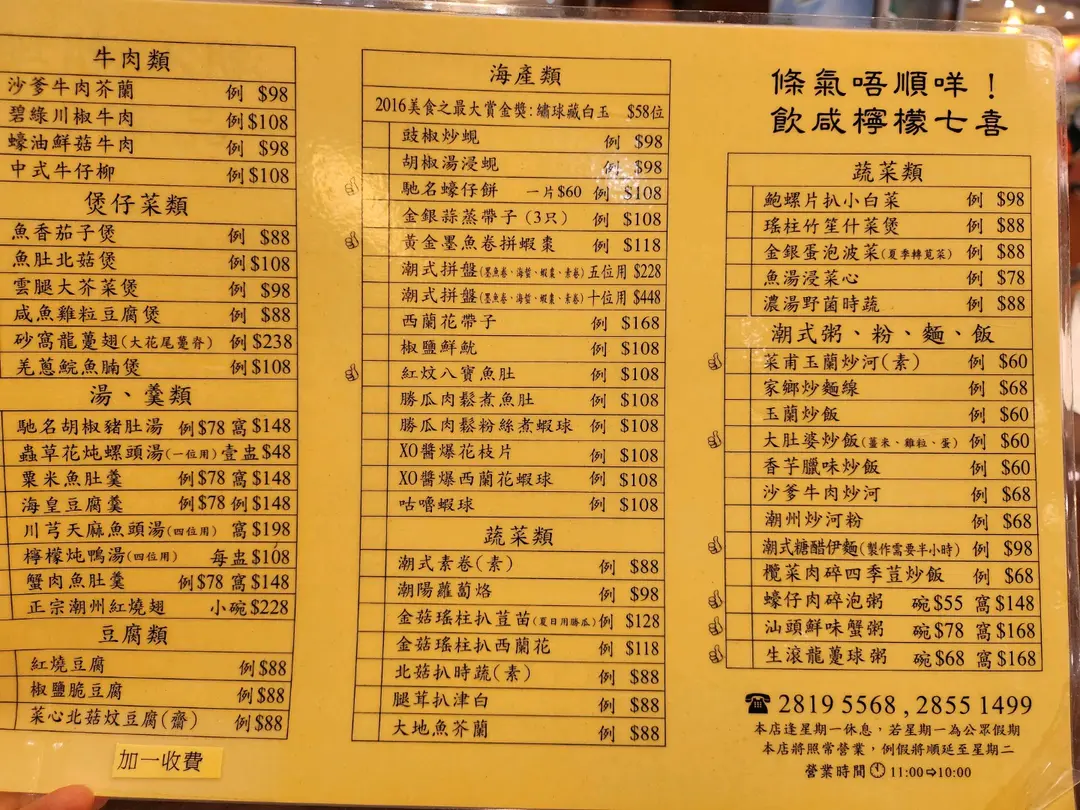 牛肉類
沙爹牛肉芥蘭 例 $98
碧綠川椒牛肉 例 $108
蠔油鮮菇牛肉 例 $98
中式牛仔柳 例 $108
煲仔菜類
魚香茄子煲 例 $88
魚肚北菇煲 例 $108
雲腿大芥菜煲 例 $98
咸魚雞粒豆腐煲 例 $88
砂窩龍躉翅(大花尾躉脊) 例 $238
羌蔥鯇魚腩煲 例 $108
湯、羹類
馳名胡椒豬肚湯 例 $78 窩 $148
蟲草花炖螺頭湯(一位用) 壹盅 $48
粟米魚肚羹 例 $78 窩 $148
海皇豆腐羹 例 $78 例 $148
川芎天麻魚頭湯(四位用) 窩 $198
檸檬炖鴨湯(四位用) 每盅 $108
蟹肉魚肚羹 例 $78 窩 $148
正宗潮州紅燒翅 小碗 $228
豆腐類
紅燒豆腐 例 $88
椒鹽脆豆腐 例 $88
菜心北菇炆豆腐(齋) 例 $88
加一收費
海產類
2016美食之最大賞金獎:繡球藏白玉 $58位
豉椒炒蜆 例 $98
胡椒湯浸蜆 例 $98
馳名蠔仔餅 一片$60 例 $108
金銀蒜蒸帶子(3只) 例 $108
黃金墨魚卷拼蝦棗 例 $118
潮式拼盤(墨魚卷、海蜇、蝦棗、素卷) 五位用 $228
潮式拼盤(墨魚卷、海蜇、蝦棗、素卷) 十位用 $448
西蘭花帶子 例 $168
椒鹽鮮魷 例 $108
紅炆八寶魚肚 例 $108
勝瓜肉鬆煮魚肚 例 $108
勝瓜肉鬆粉絲煮蝦球 例 $108
XO醬爆花枝片 例 $108
XO醬爆西蘭花蝦球 例 $108
咕嚕蝦球 例 $108
蔬菜類
潮式素卷(素) 例 $88
潮陽蘿蔔烙 例 $98
金菇瑤柱扒荳苗(夏日用勝瓜) 例 $128
金菇瑤柱扒西蘭花 例 $118
北菇扒時蔬(素) 例 $88
腿茸扒津白 例 $88
大地魚芥蘭 例 $88
條氣唔順咩!
飲咸檸檬七喜
蔬菜類
鮑螺片扒小白菜 例 $98
瑤柱竹笙什菜煲 例 $88
金銀蛋泡波菜(夏季轉莧菜) 例 $88
魚湯浸菜心 例 $78
濃湯野菌時蔬 例 $88
潮式粥、粉、麵、飯
菜甫玉蘭炒河(素) 例 $60
家鄉炒麵線 例 $68
玉蘭炒飯 例 $60
大肚婆炒飯(薑米、雞粒、蛋) 例 $60
香芋臘味炒飯 例 $60
沙爹牛肉炒河 例 $68
潮州炒河粉 例 $68
潮式糖醋伊麵(製作需要半小時) 例 $98
欖菜肉碎四季荳炒飯 例 $68
蠔仔肉碎泡粥 碗 $55 窩 $148
汕頭鮮味蟹粥 碗 $78 窩 $168
生滾龍躉球粥 碗 $68 窩 $168
☎ 2819 5568 , 2855 1499
本店逢星期一休息，若星期一為公眾假期
本店將照常營業，例假將順延至星期二
營業時間 11:00⇨10:00